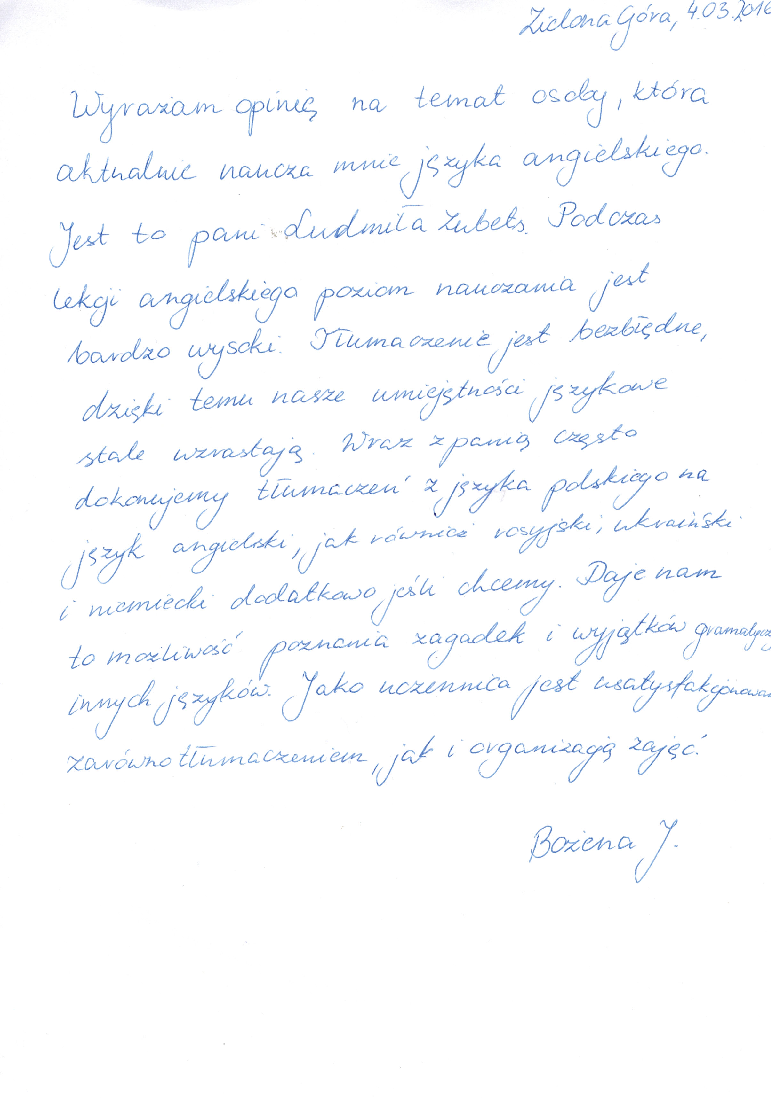 Zielona Góra, 4.03.2016
Wyrażam opinię na temat osoby, która
aktualnie naucza mnie języka angielskiego.
Jest to pani Ludmiła Zubets. Podczas
lekcji angielskiego poziom nauczania jest
bardzo wysoki. Tłumaczenie jest bezbłędne,
dzięki temu nasze umiejętności językowe
stale wzrastają. Wraz z panią często
dokonujemy tłumaczeń z języka polskiego na
język angielski, jak również rosyjski, ukraiński
i niemiecki dodatkowo jeśli chcemy. Daje nam
to możliwość poznania zagadek i wyjątków
innych języków. Jako uczennica jest
zarówno tłumaczeniem, jak i organizacją zajęć.
Bożena J.